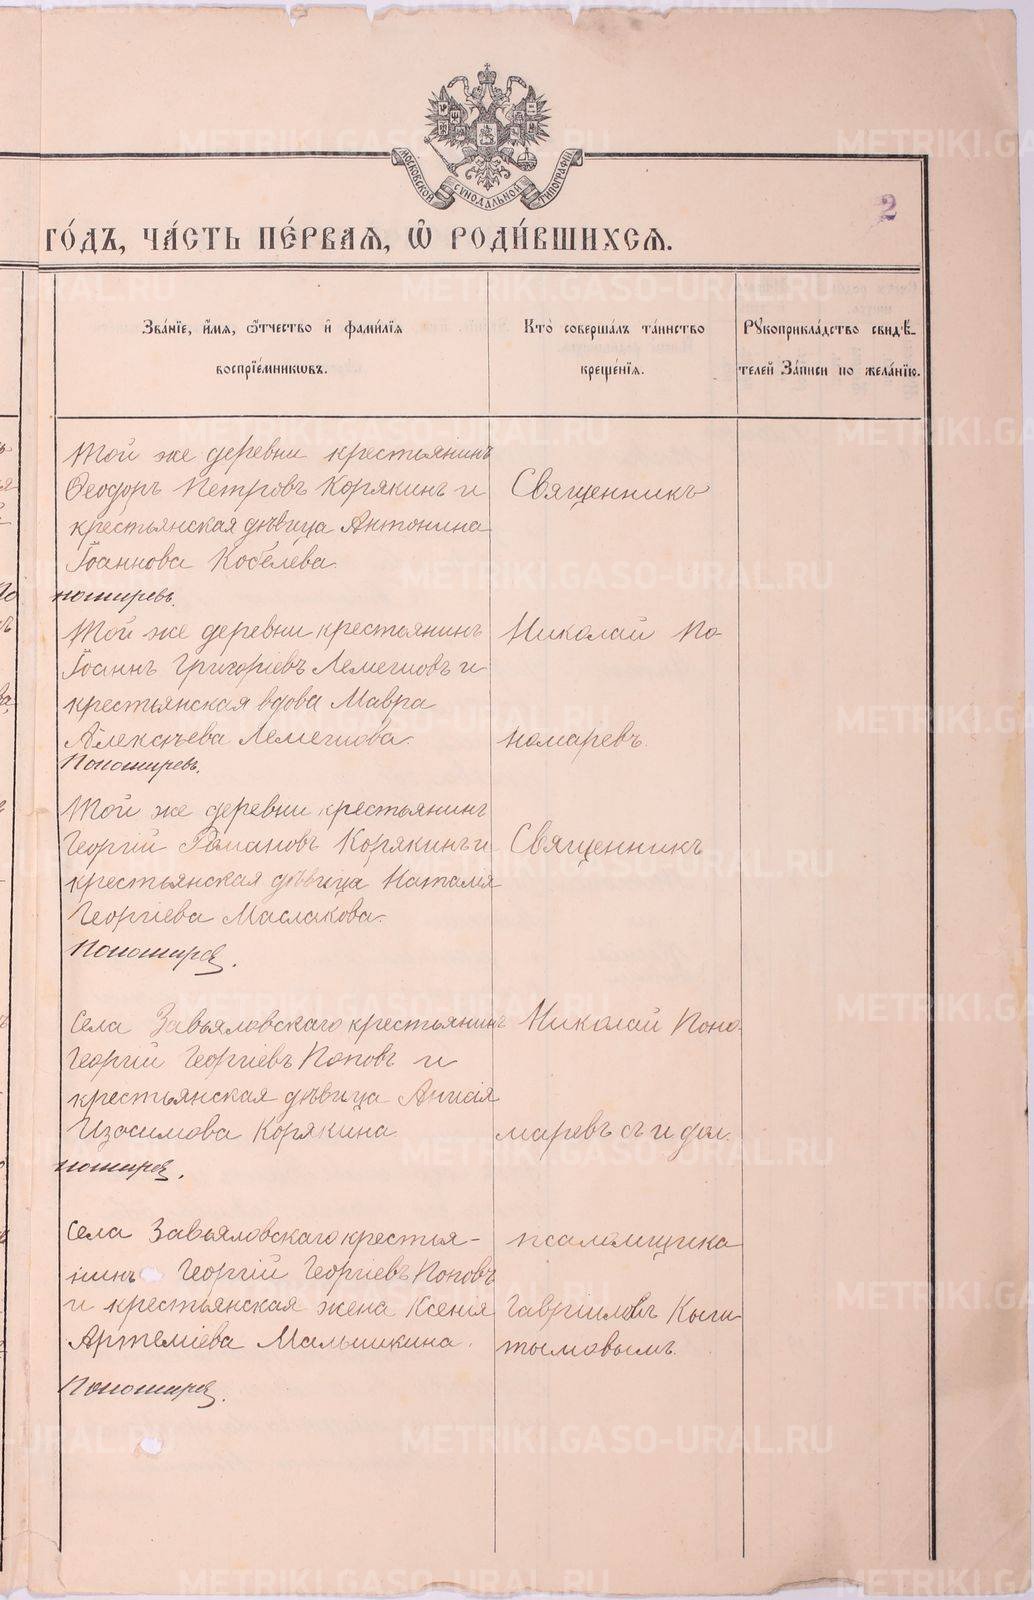 МОСКОВСКОЙ СѴНОДАЛЬНОЙ ТИПОГРАФІИ
2
ГО́ДЪ, ЧА́СТЬ ПЕ́РВАѦ, Ѡ҆ РОДИ́ВШИХСѦ.
Зва́нїе, и҆́мѧ, ѻ҆́тчество и҆ фами́лїѧ
воспрїе́мникѡвъ.
Кто̀ соверша́лъ та́инство
креще́нїѧ.
Рꙋкоприкла́дство свидѣ́-
телей За́писи по жела́нїю.
Той же деревни крестьянинъ
Ѳеодоръ Петровъ Корякинъ и
крестьянская дѣвица Антонина
Іоаннова Кобелева.
Священникъ
Той же деревни крестьянинъ
Іоаннъ Григоріевъ Лемешовъ и
крестьянская вдова Мавра
Алексѣева Лемешова.
Николай По-
номаревъ.
Той же деревни крестьянинъ
Георгій Романовъ Корякинъ и
крестьянская дѣвица Наталія
Георгіева Маслакова.
Священникъ
Села Завьяловскаго крестьянинъ
Георгій Георгіевъ Поповъ и
крестьянская дѣвица Анисія
Изосимова Корякина
Николай Поно-
маревъ съ и дол.
Села Завьяловскаго крестья-
нинъ Георгій Георгіевъ Поповъ
и крестьянская жена Ксенія
Артеміева Малышкина.
псаломщика
Гавріиломъ Кыш-
тымовымъ.
METRIKI.GASO-URAL.RU